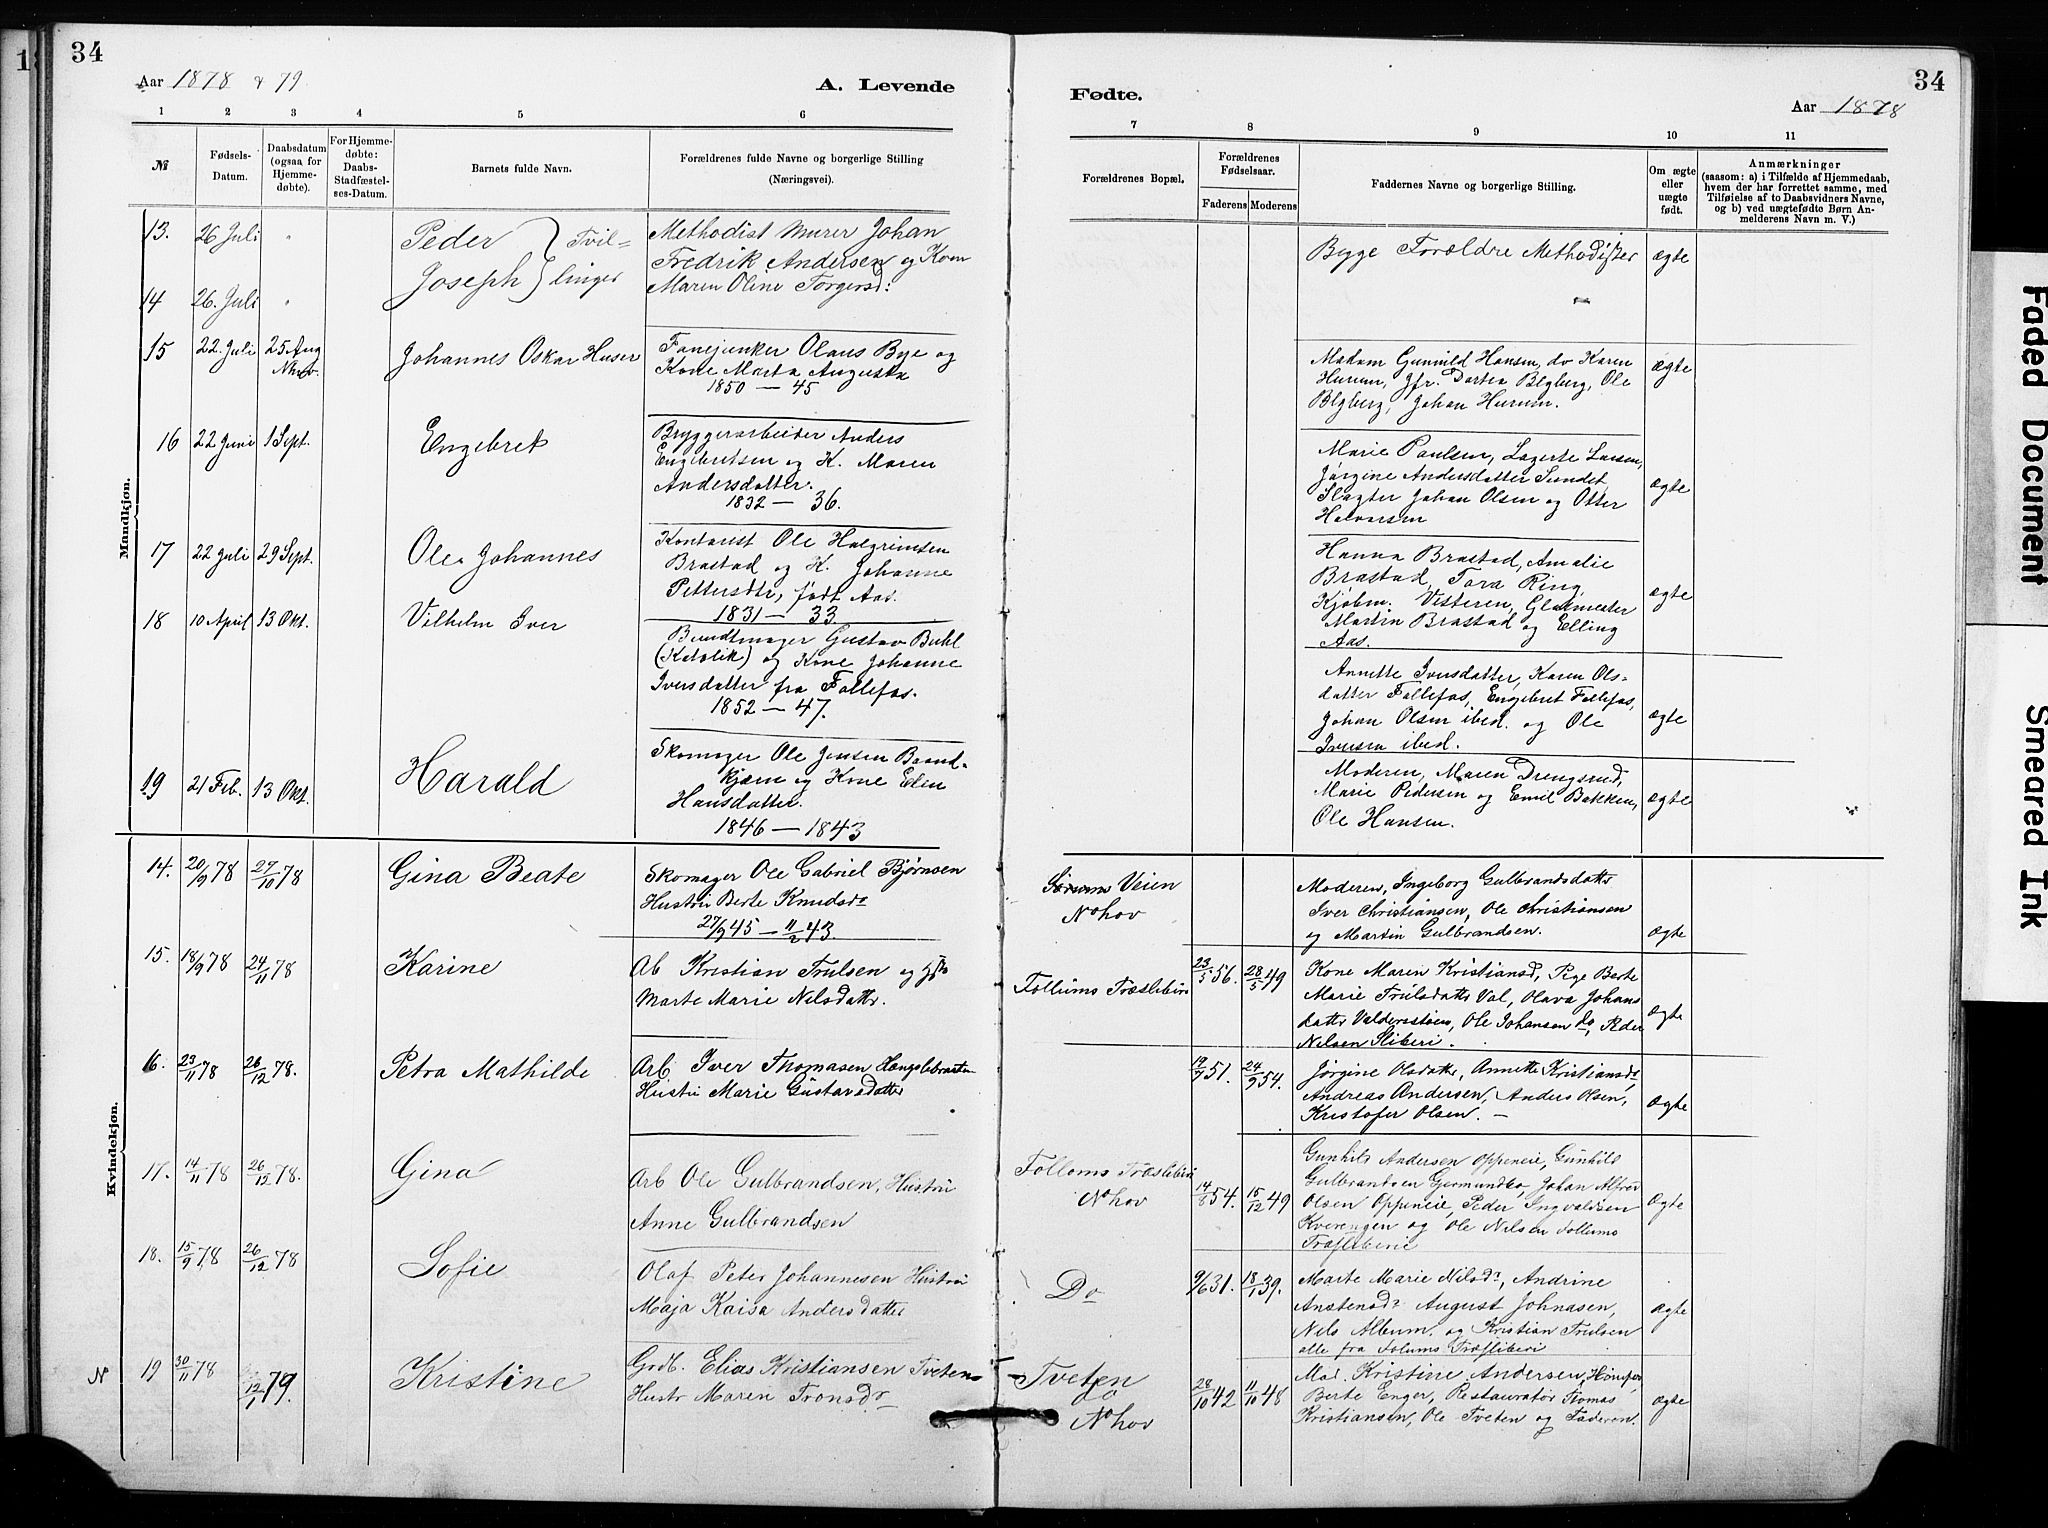 34
Aar 1878 & 79
A. Levende
1 2 3 4 5 6
№
Fødsels-
Datum.
Daabsdatum
(ogsaa for
Hjemme-
døbte).
For Hjemme-
døbte:
Daabs-
Stadfæstel-
ses-Datum.
Barnets fulde Navn.
Forældrenes fulde Navne og borgerlige Stilling
(Næringsvei).
Mandkjøn.
13. 26 Juli " Peder } Tvil-
Methodist Murer Johan
Fredrik Andersen og Kone
14 26. Juli " Joseph } linger
Maren Oline Torgersd:
15 22. Juli 25 Aug Johannes Oskar Huser
Fanejunker Olaus Bye og
Kone Marta Augusta
1850 — 45
16 22 Juni 1 Sept. Engebret
Bryggerarbeider Anders
Engebretsen og K. Maren
Andersdatter.
1832 — 36.
17 22 Juli 29 Sept. Ole Johannes
Kontorist Ole Halgrimsen
Brastad og K. Johanne
Pettersdtr, født Aas.
1831 — 33
18 10 April 13 Okt. Vilhelm Iver
Bundtmager Gustav Buhl
(Katolik) og Kone Johanne
Iversdatter fra Follefos.
1852 — 47.
19 21 Feb. 13 Okt. Harald
Skomager Ole Jensen Baand-
kjærn og Kone Elen
Hansdatter.
1846 — 1843
Kvindekjøn.
14. 20/9 78 27/10 78 Gina Beate
Skomager Ole Gabriel Bjørnsen
Hustru Berte Knudsdr
27/9 45 — 11/2 43.
15. 18/9 78 24/11 78 Karine
Ab Kristian Trulsen og
Marte Marie Nilsdattr.
16. 23/11 78 26/12 78. Petra Mathilde
Arb Iver Thomasen Hengslebraaten
Hustru Marie Gustavsdatter
17. 14/11 78 26/12 78. Gina
Arb Ole Gulbrandsen, Hustru
Anne Gulbrandsen
18. 15/9 78 26/12 78 Sofie
Olaf Peter Johannesen Hustru
Maja Kaisa Andersdatter
N 19 30/11 78 12/1 79. Kristine
Grdb. Elias Kristiansen Tveten
Hustr Maren Tronsdr
Fødte.
34
Aar 1878
7 8 9 10 11
Forældrenes Bopæl.
Forældrenes
Fødselsaar.
Faderens Moderens
Faddernes Navne og borgerlige Stilling.
Om ægte
eller
uægte
født.
Anmærkninger
(saasom: a) i Tilfælde af Hjemmedaab,
hvem der har forrettet samme, med
Tilføielse af to Daabsvidners Navne,
og b) ved uægtefødte Børn An-
melderens Navn m. V.)
Begge Forældre Methodister ægte
Madam Gunnild Hansen, do Karen
Hurum, Jfr. Dortea Blyberg, Ole ægte
Blyberg, Johan Hurum.
Marie Paulsen, Lagerte Larsen,
Jørgine Andersdatter Sundet,
Slagter Johan Olsen og Otter ægte
Halvorsen
Hanna Brastad, Amalie
Brastad, Tora Ring,
Kjøbm. Vesteren, Glasmester ægte
Martin Brastad og Elling
Aas.
Annette Iversdatter, Karen Ols-
datter Follefos, Engebret Follefos,
Johan Olsen ibid. og Ole ægte
Iversen ibid.
Moderen, Maren Drengsrud,
Marie Pedersen og Emil Bakken, ægte
Ole Hansen.
Veien
Nohov
Moderen, Ingeborg Gulbrandsdattr
Iver Christiansen, Ole Christiansen
og Martin Gulbrandsen. ægte
Follums Træsliberi 23/5 56. 28/5 49
Kone Maren Kristiansd, Pige Berte
Marie Trulsdatter Val, Olava Johans
datter Valdersstøen, Ole Johansen do, Peder ægte
Nilsen Sliberi.
19/9 51. 24/9 54.
Jørgine Olsdatter, Annette Kristiansdr
Andreas Andersen, Anders Olsen, ægte
Kristofer Olsen. —
Follums Træsliberi
Nohov 14/8 54. 15/12 49
Gunhild Andersen Oppeneie, Gunhild
Gulbrandsen Germundbo, Johan Alfred
Olsen Oppeneie, Peder Ingvaldsen ægte
Kverengen og Ole Nilsen Follums
Træsliberi
Do 9/6 31. 18/1 39.
Marte Marie Nilsdr, Andrine
Anstensdr August Johnasen, ægte
Nils Album. og Kristian Trulsen
alle fra Folums Træsliberi
Tveten
Nohov 28/10 42 11/10 48
Mad. Kristine Andersen, Hønefos,
Berte Enger, Restauratør Tomas ægte
Kristiansen, Ole Tveten og Faderen.
Faded Document
Smeared Ink